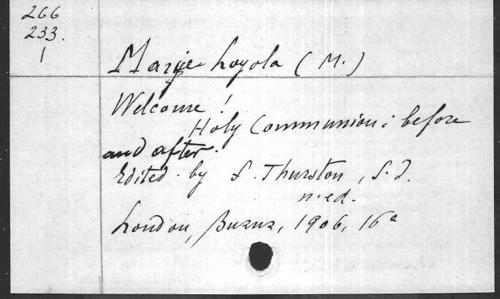 266
233.
1
Marie Loyola (M.)
Welcome!
Holy Communion: before
and after.
Edited by S. Thurston, S.J.
n.ed.
London, Burns, 1906, 16°